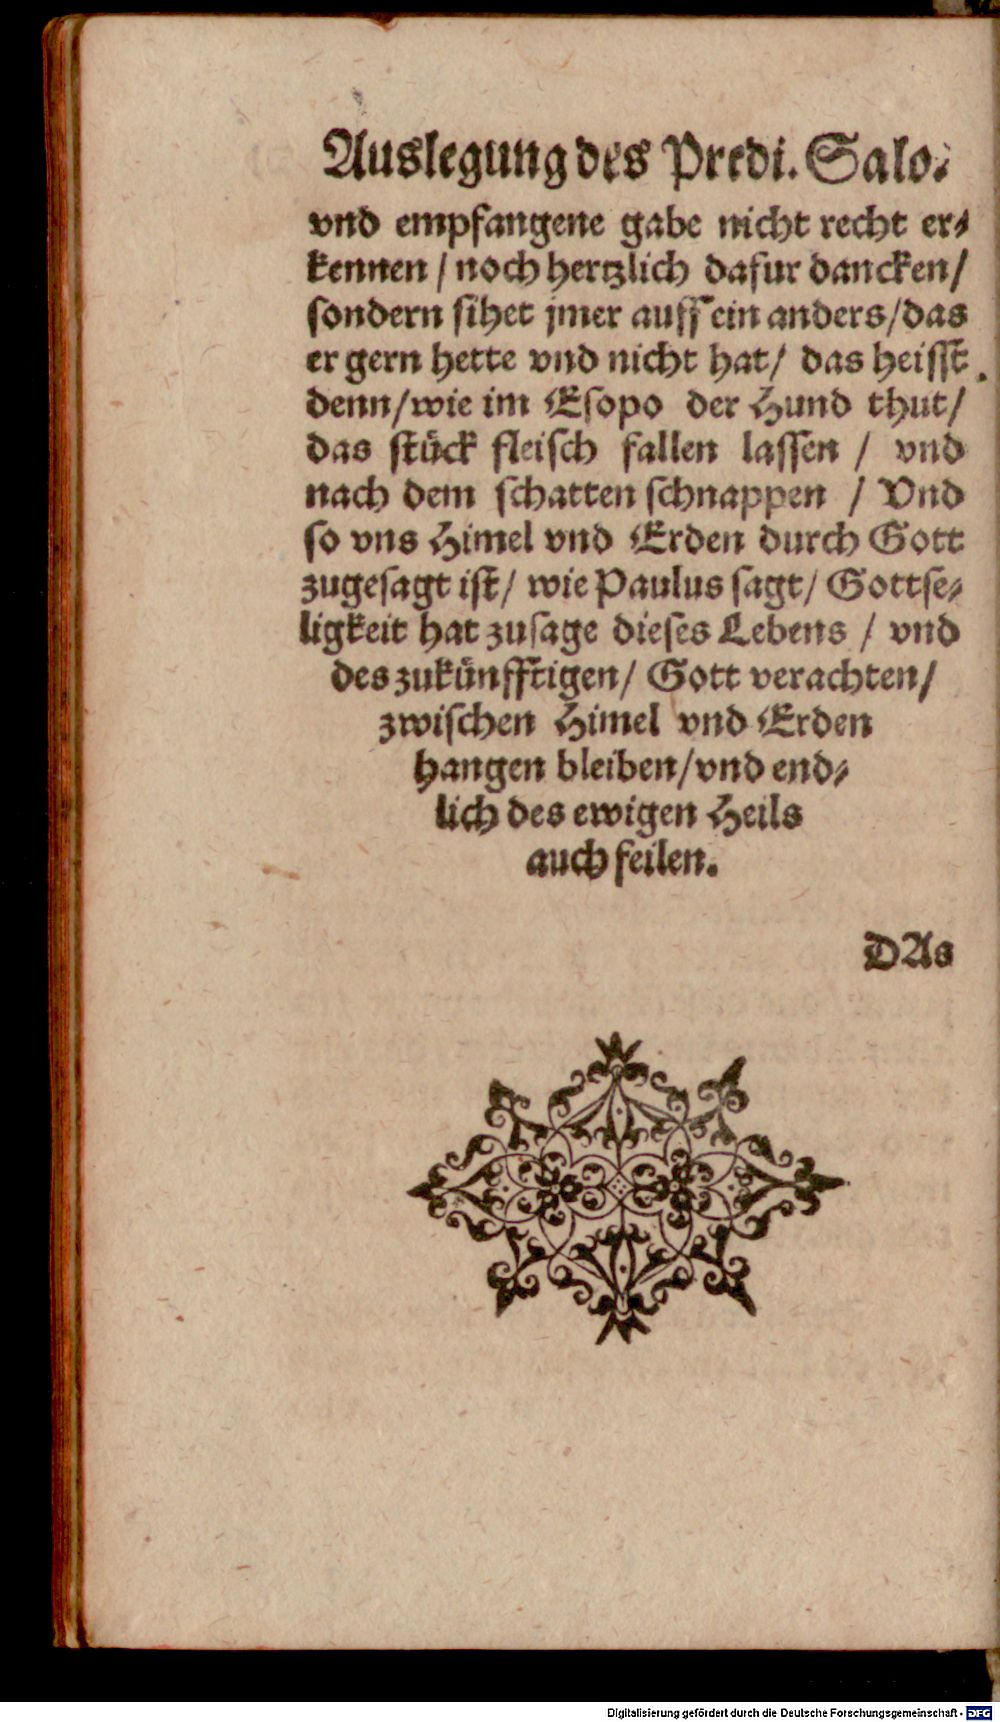 Auslegung des Predi. Salo.
vnd empfangene gabe nicht recht er⸗
kennen / noch hertzlich dafur dancken /
sondern sihet jmer auff ein anders / das
er gern hette vnd nicht hat / das heisst
denn / wie im Esopo der Hund thut /
das stück fleisch fallen lassen / vnd
nach dem schatten schnappen / Vnd
so vns Himel vnd Erden durch Gott
zugesagt ist / wie Paulus sagt / Gottse⸗
ligkeit hat zusage dieses Lebens / vnd
des zukünfftigen / Gott verachten /
zwischen Himel vnd Erden
hangen bleiben / vnd end⸗
lich des ewigen Heils
auch feilen.
DAs
Digitalisierung gefördert durch die Deutsche Forschungsgemeinschaft - DFG